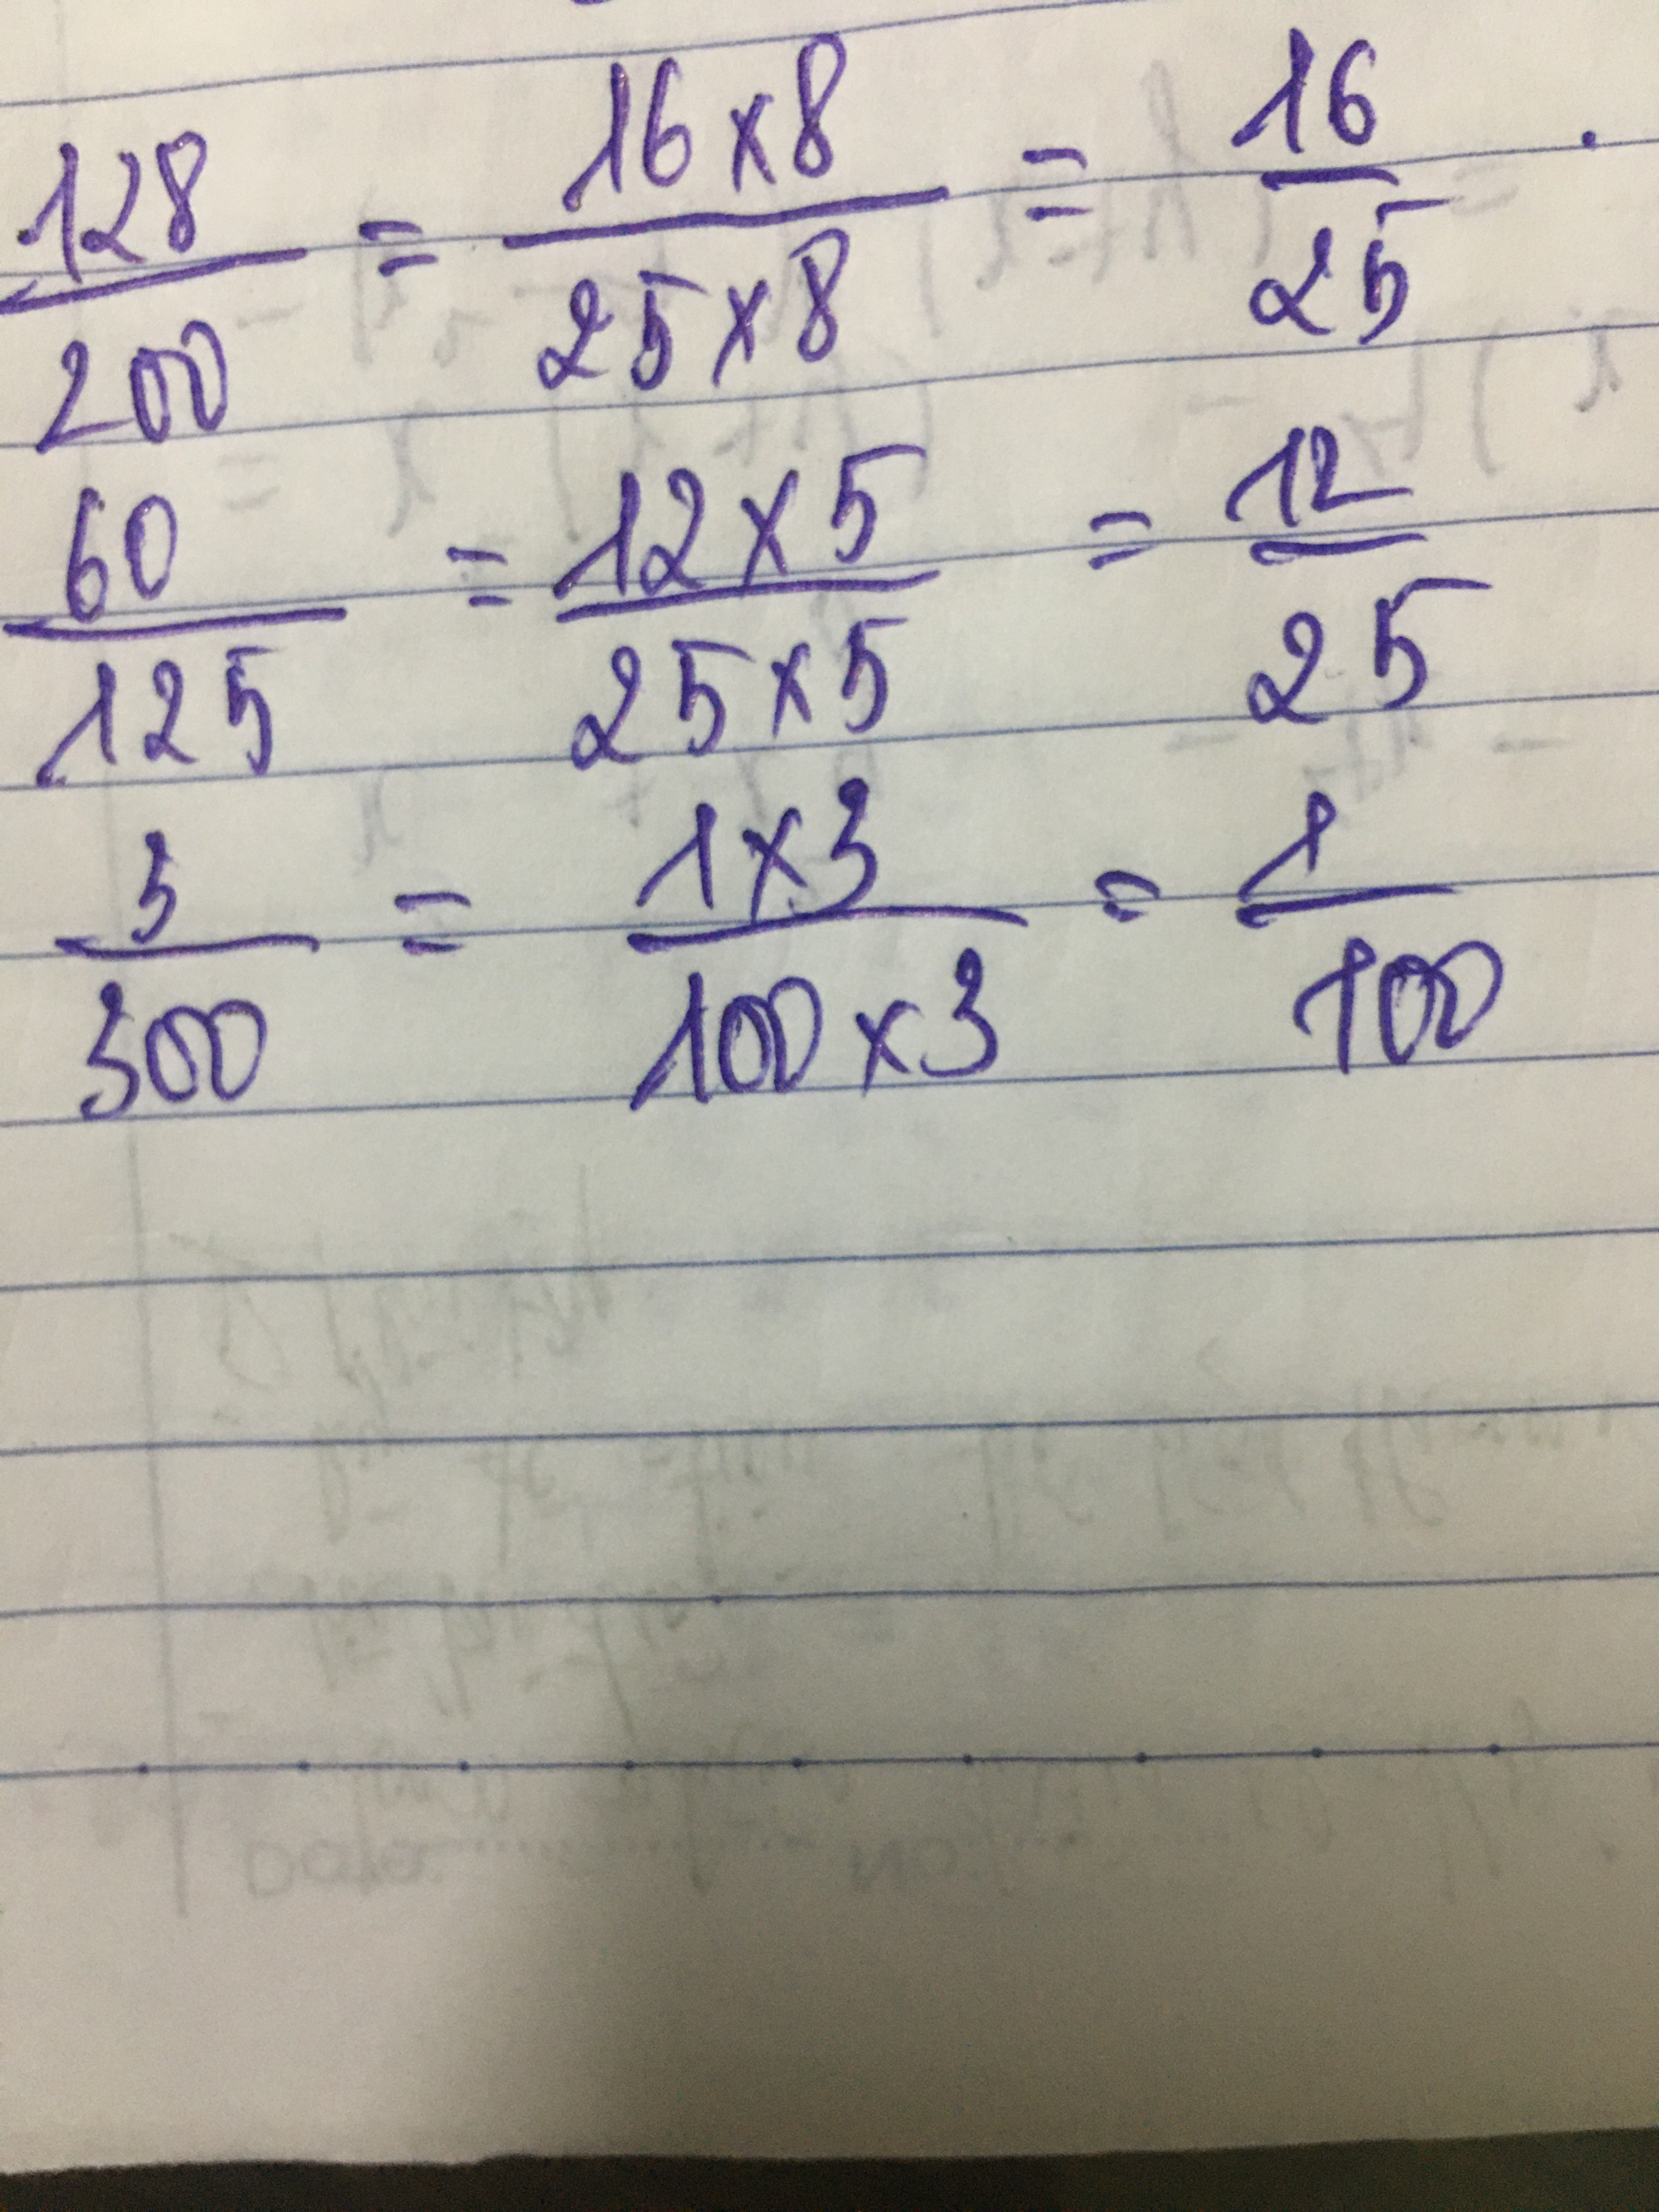 128/200 = 16×8/25×8 = 16/25 .
60/125 = 12×5/25×5 = 12/25
3/300 = 1×3/100×3 = 1/100